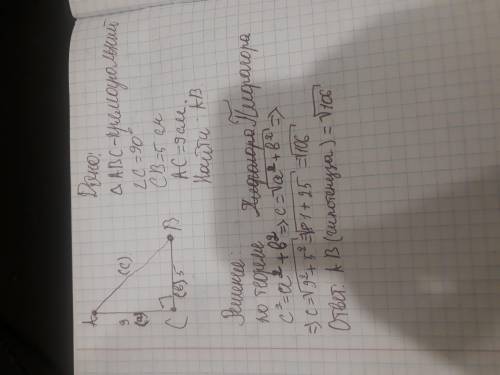 Дано:
△ABC - прямоугольний
∠C = 90°
CB = 5 см
AC = 9 см.
Найти: AB
A
9
(a)
(c)
C
(b) 5
B
Решение:
по теореме Пифагора
c² = a² + b² => c = √a² + b² =>
=> c = √9² + 5² = √81 + 25 = √106
Ответ: AB (гипотенуза) = √106